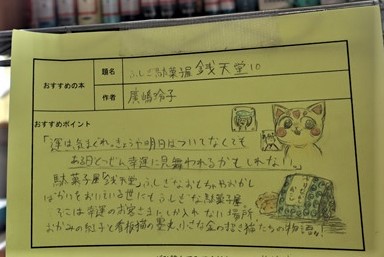 おすすめの本
題名
ふしぎ駄菓子屋 銭天堂 10
作者
廣嶋玲子
おすすめポイント
「運は、気まぐれ。きょうや明日はついてなくても
ある日とつぜん幸運に見舞われるかもしれない。」
駄菓子屋「銭天堂」ふしぎなおもちゃやおかし
ばかりをおいている世にもふしぎな駄菓子屋。
そこは幸運のお客さましか入れない場所。
おかみの紅子と看板猫の墨丸、小さな金の招き猫たちの物語!!